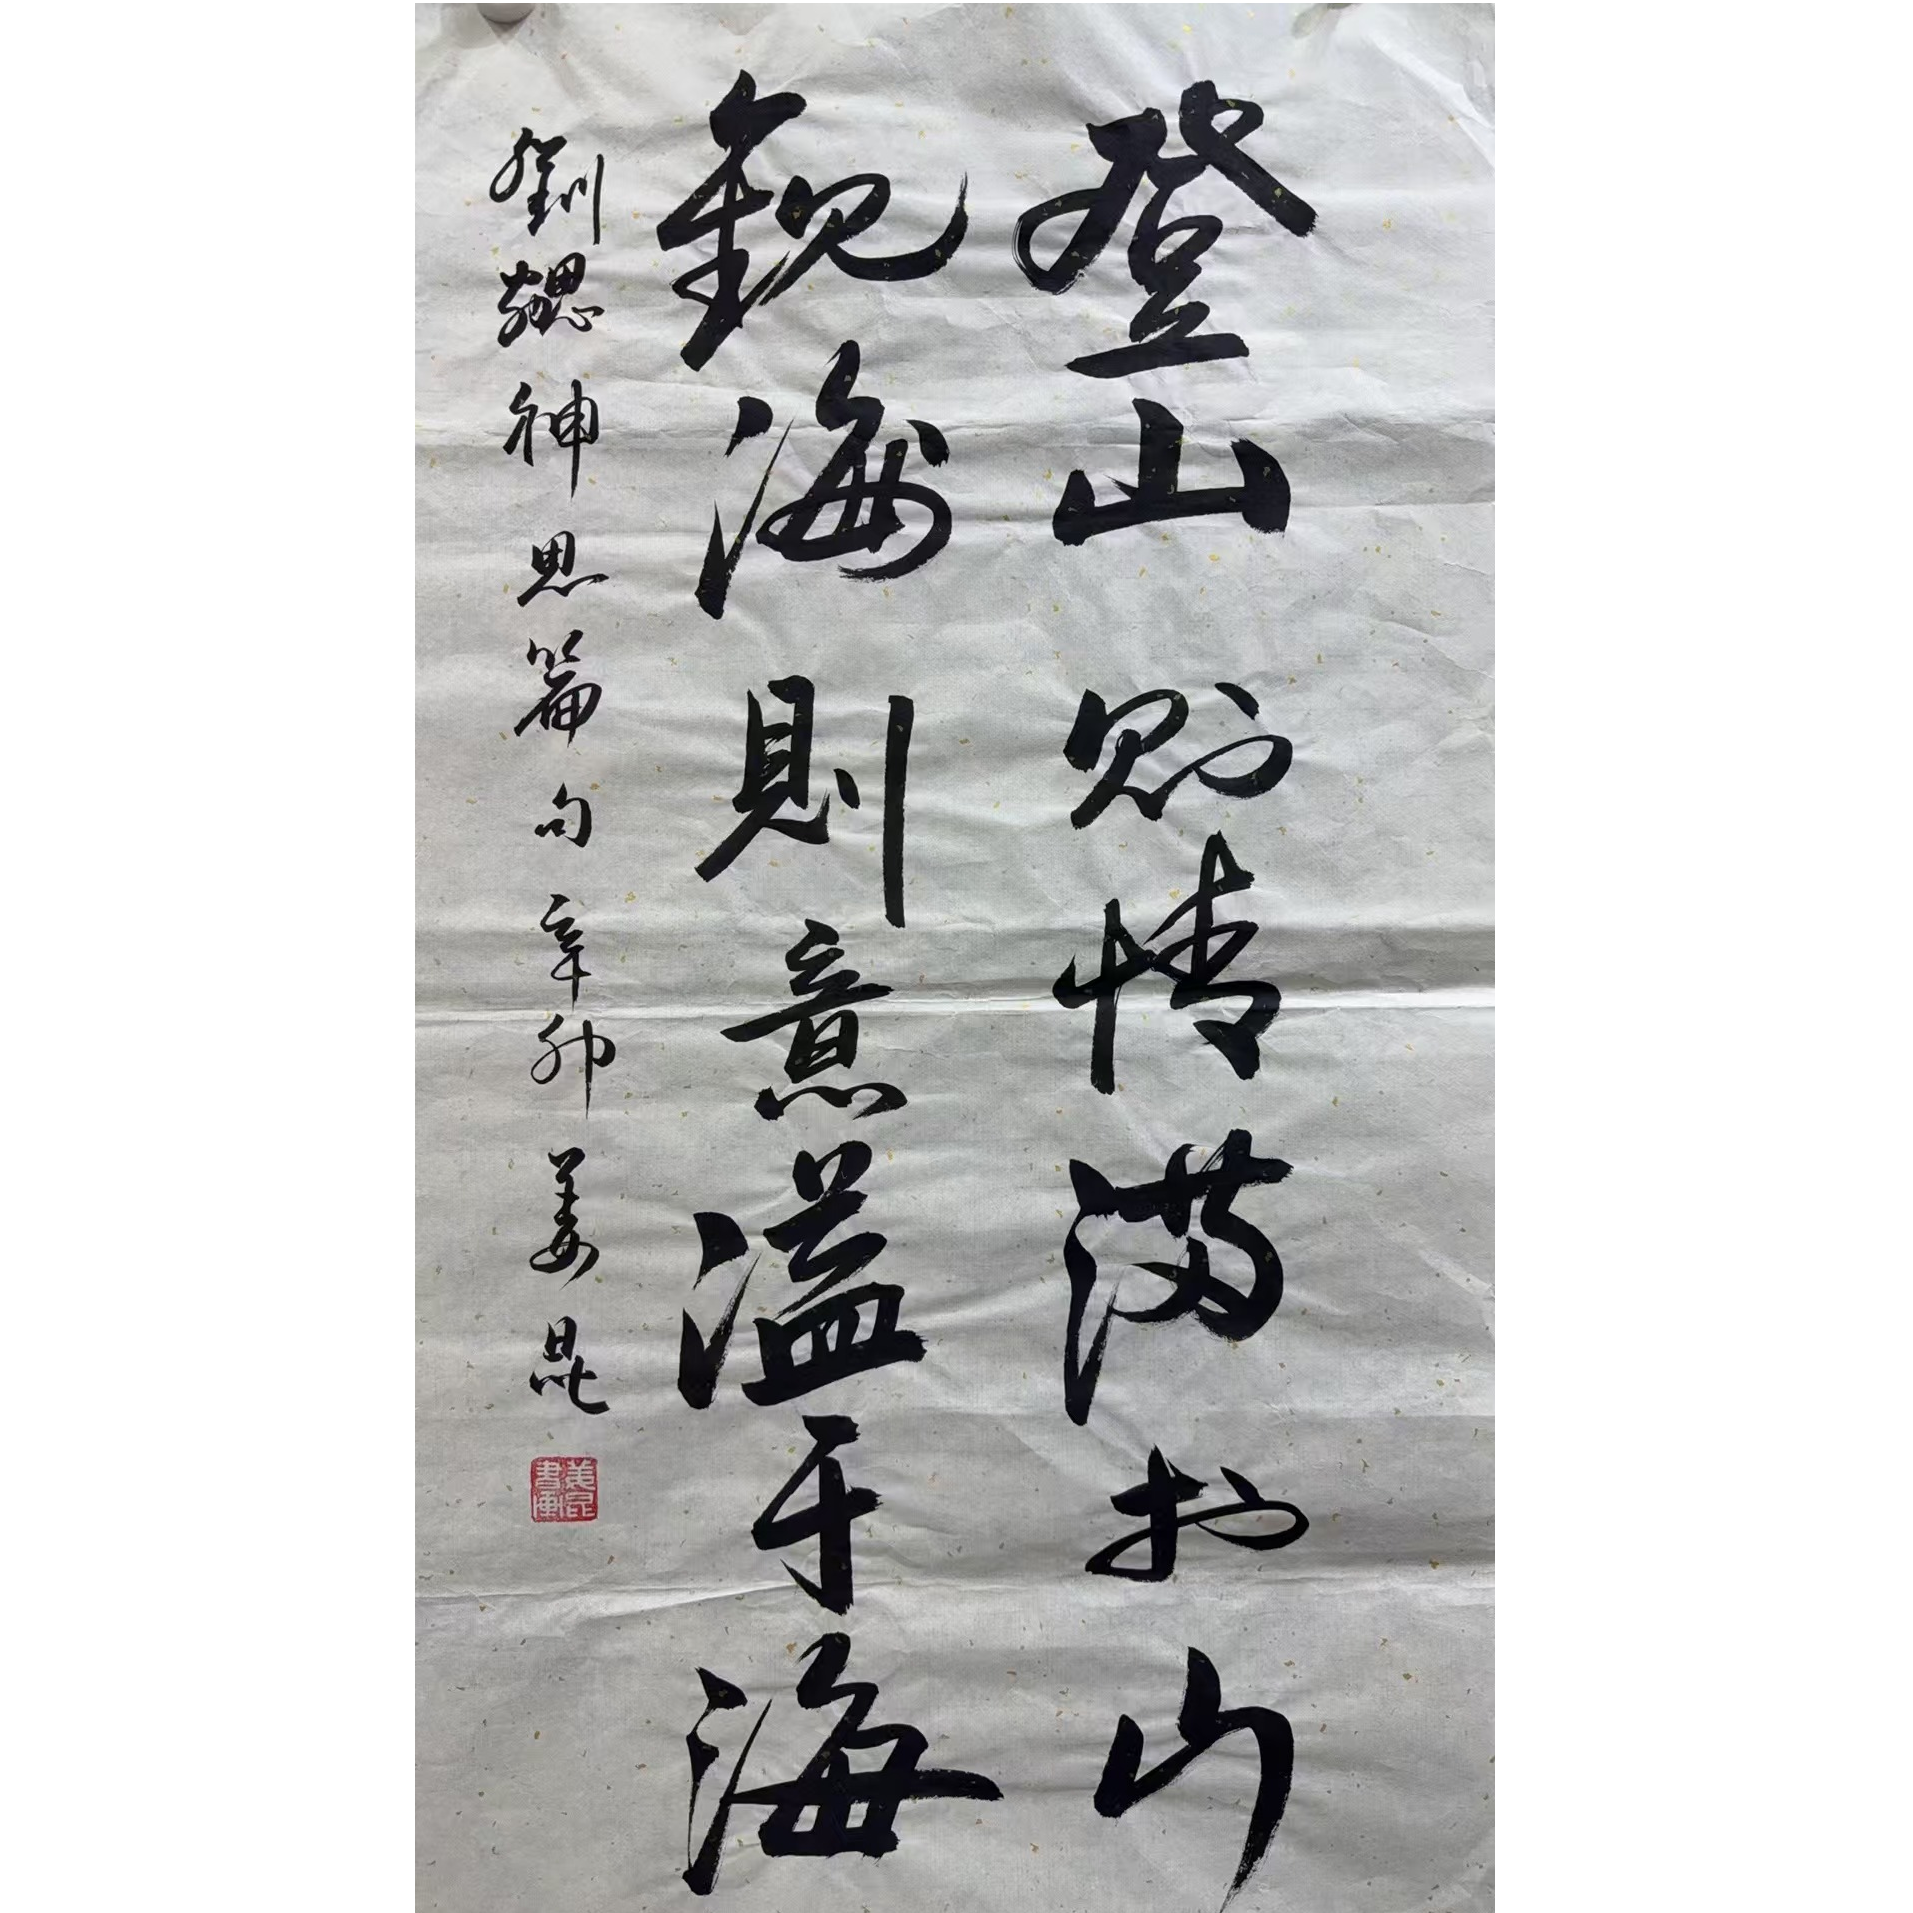 登山則情满於山
觀海則意溢于海
劉勰神思篇句辛卯姜昆
姜昆書画